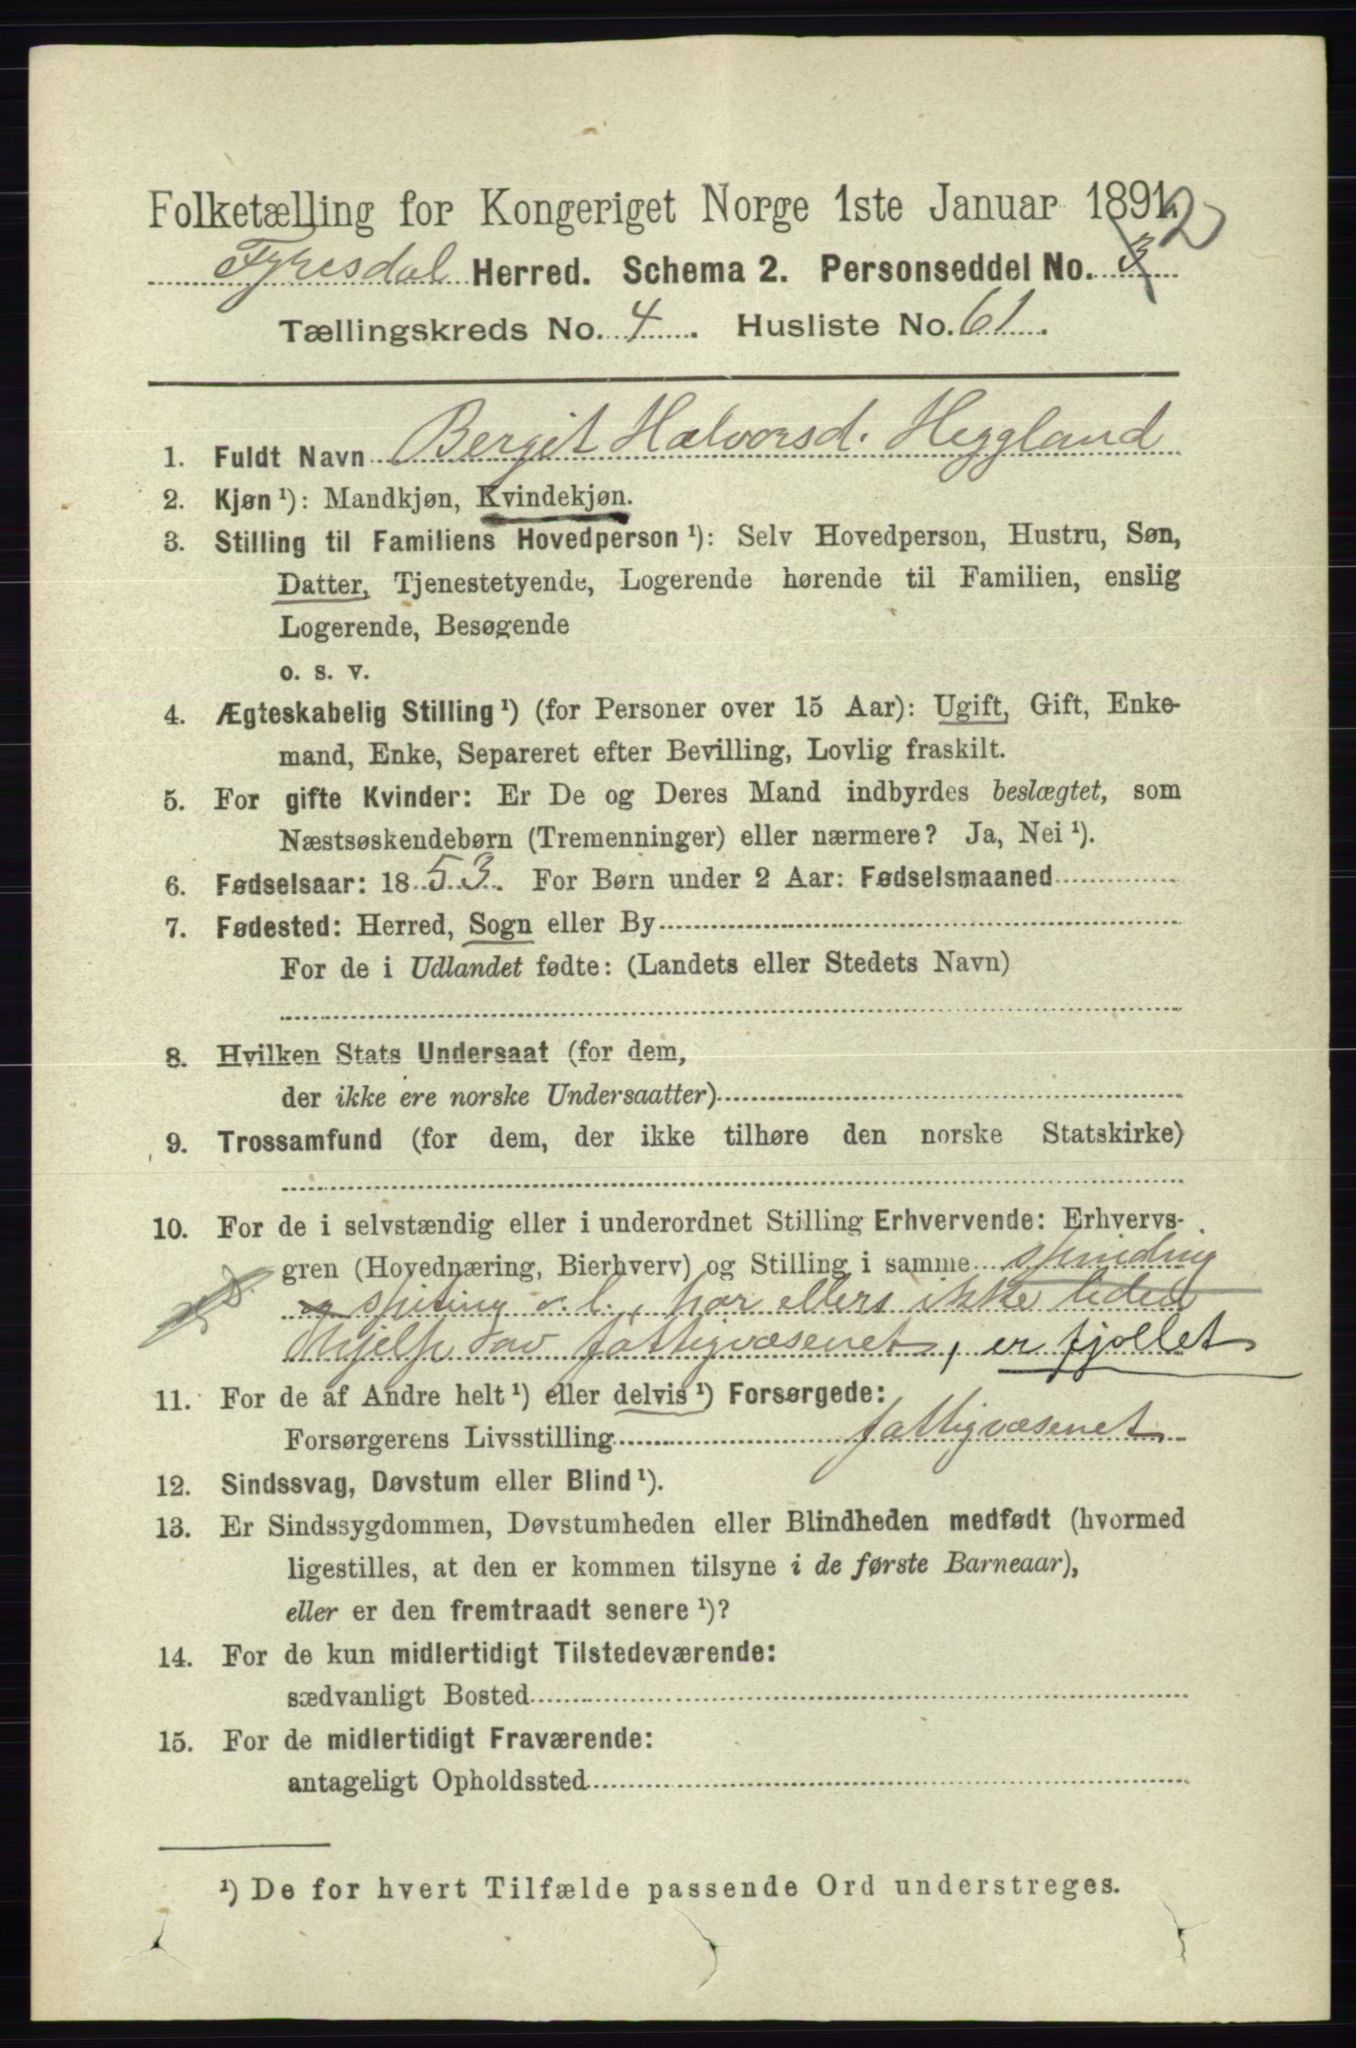 Folketælling for Kongeriget Norge 1ste Januar 1891.
Fyresdal Herred. Schema 2. Personseddel No. 3 2
Tællingskreds No. 4. Husliste No. 61.
1. Fuldt Navn Bergit Halvorsd. Heggland
2. Kjøn ¹): Mandkjøn, Kvindekjøn.
3. Stilling til Familiens Hovedperson ¹): Selv Hovedperson, Hustru, Søn,
Datter, Tjenestetyende, Logerende hørende til Familien, enslig
Logerende, Besøgende
o. s. v.
4. Ægteskabelig Stilling ¹) (for Personer over 15 Aar): Ugift, Gift, Enke-
mand, Enke, Separeret efter Bevilling, Lovlig fraskilt.
5. For gifte Kvinder: Er De og Deres Mand indbyrdes beslægtet, som
Næstsøskendebørn (Tremenninger) eller nærmere? Ja, Nei ¹).
6. Fødselsaar: 1853. For Børn under 2 Aar: Fødselsmaaned
7. Fødested: Herred, Sogn eller By
For de i Udlandet fødte: (Landets eller Stedets Navn)
8. Hvilken Stats Undersaat (for dem,
der ikke ere norske Undersaatter)
9. Trossamfund (for dem, der ikke tilhøre den norske Statskirke)
10. For de i selvstændig eller i underordnet Stilling Erhvervende: Erhvervs-
gren (Hovednæring, Bierhverv) og Stilling i samme spinding
og spiting o. l., har ellers ikke liden
Hjelp av fattigvæsenet, er fjollet
11. For de af Andre helt ¹) eller delvis ¹) Forsørgede:
Forsørgerens Livsstilling fattigvæsenet
12. Sindssvag, Døvstum eller Blind ¹).
13. Er Sindssygdommen, Døvstumheden eller Blindheden medfødt (hvormed
ligestilles, at den er kommen tilsyne i de første Barneaar),
eller er den fremtraadt senere ¹)?
14. For de kun midlertidigt Tilstedeværende:
sædvanligt Bosted
15. For de midlertidigt Fraværende:
antageligt Opholdssted
¹) De for hvert Tilfælde passende Ord understreges.